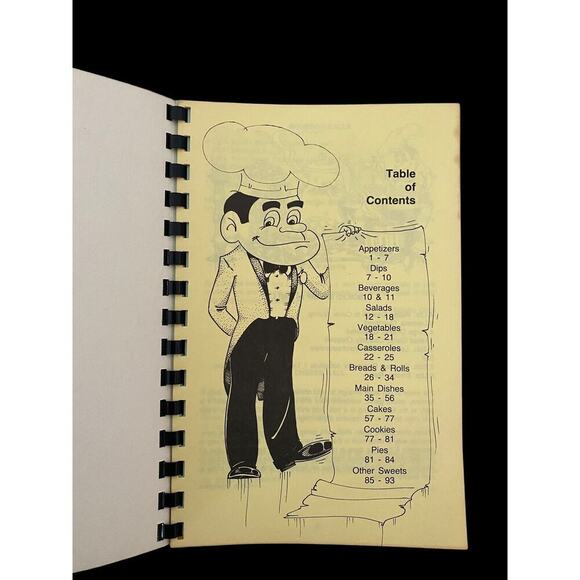 Table
of
Contents
Appetizers
1 - 7
Dips
7 - 10
Beverages
10 & 11
Salads
12 - 18
Vegetables
18 - 21
Casseroles
22 - 25
Breads & Rolls
26 - 34
Main Dishes
35 - 56
Cakes
57 - 77
Cookies
77 - 81
Pies
81 - 84
Other Sweets
85 - 93